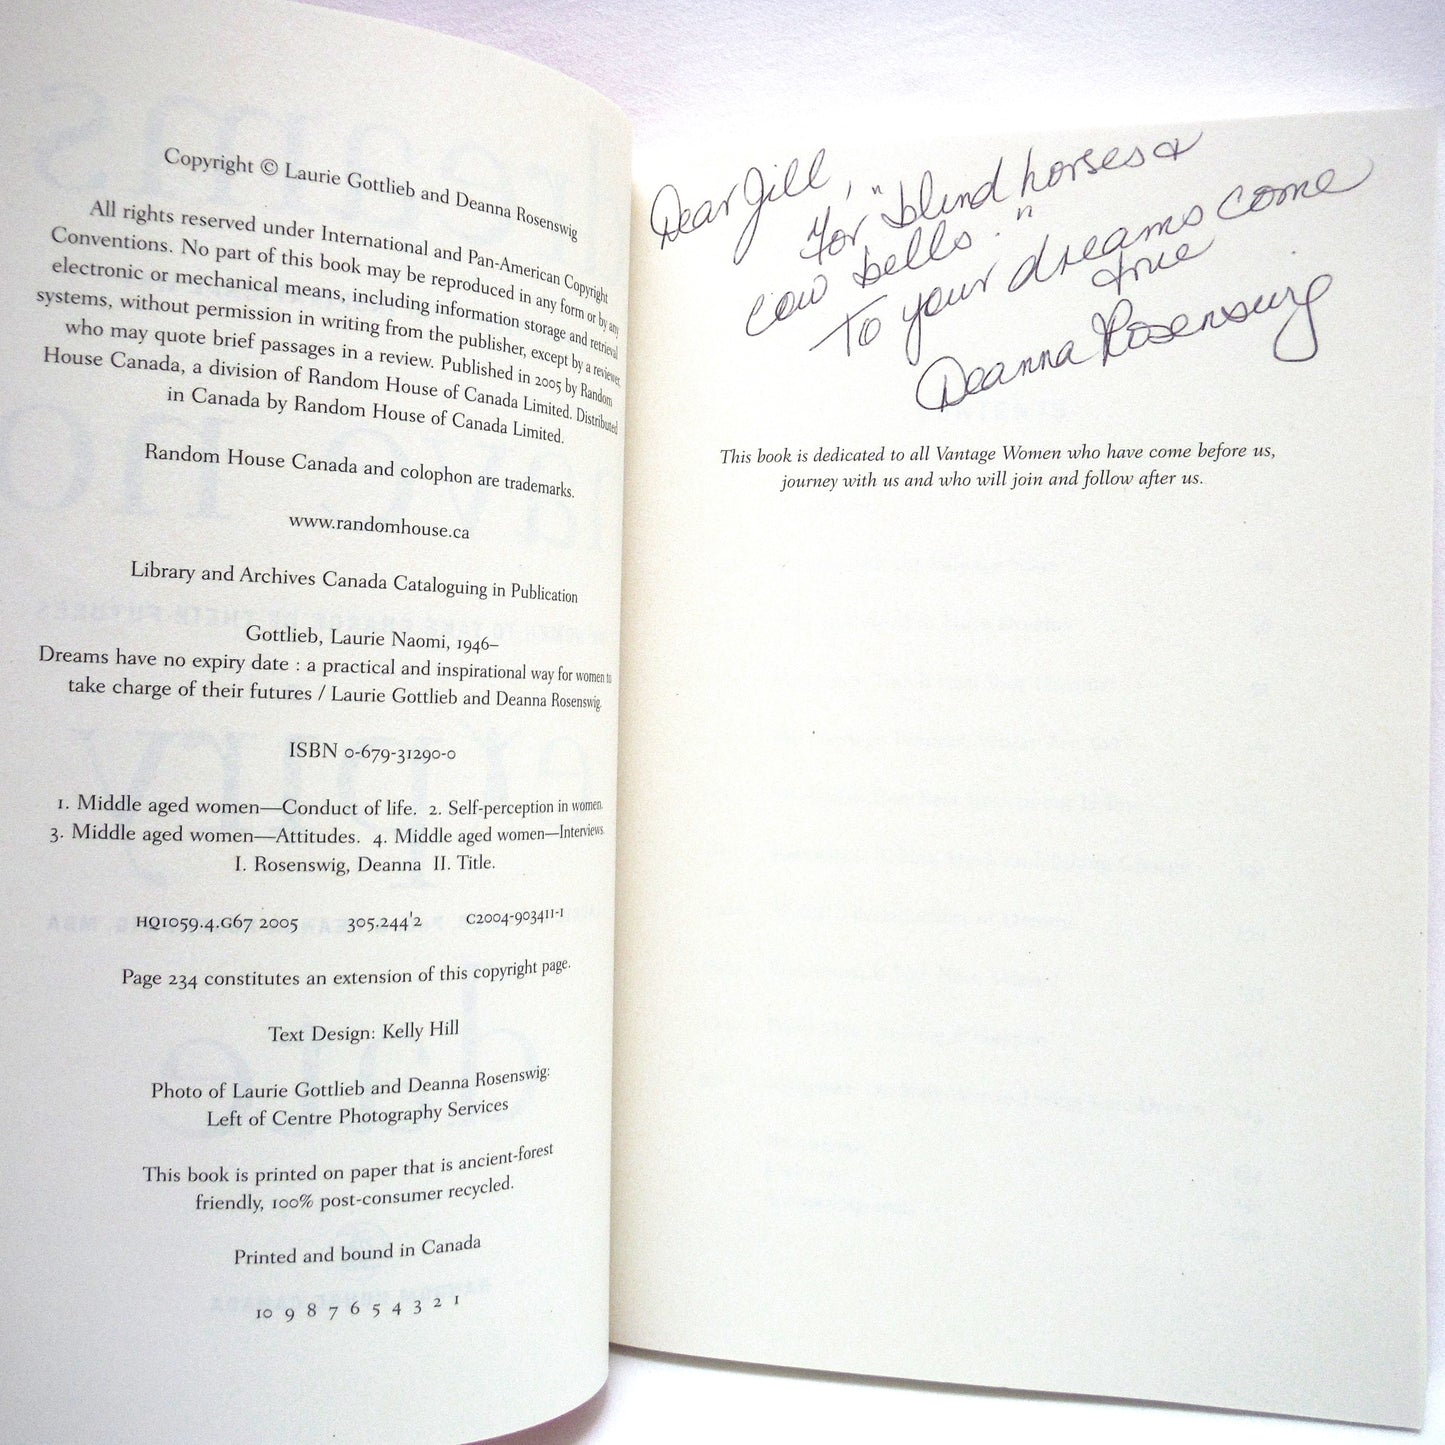 Copyright © Laurie Gottlieb and Deanna Rosenswig
All rights reserved under International and Pan-American Copyright
Conventions. No part of this book may be reproduced in any form or by any
electronic or mechanical means, including information storage and retrieval
systems, without permission in writing from the publisher, except by a reviewer,
who may quote brief passages in a review. Published in 2005 by Random
House Canada, a division of Random House of Canada Limited. Distributed
in Canada by Random House of Canada Limited.
Random House Canada and colophon are trademarks.
www.randomhouse.ca
Library and Archives Canada Cataloguing in Publication
Gottlieb, Laurie Naomi, 1946–
Dreams have no expiry date : a practical and inspirational way for women to
take charge of their futures / Laurie Gottlieb and Deanna Rosenswig.
ISBN 0-679-31290-0
1. Middle aged women—Conduct of life. 2. Self-perception in women.
3. Middle aged women—Attitudes. 4. Middle aged women—Interviews.
I. Rosenswig, Deanna II. Title.
HQ1059.4.G67 2005 305.244'2 C2004-903411-1
Page 234 constitutes an extension of this copyright page.
Text Design: Kelly Hill
Photo of Laurie Gottlieb and Deanna Rosenswig:
Left of Centre Photography Services
This book is printed on paper that is ancient-forest
friendly, 100% post-consumer recycled.
Printed and bound in Canada
10 9 8 7 6 5 4 3 2 1
Dear Jill,
For "blind horses &
cow bells."
To your dreams come
true
Deanna Rosenswig
This book is dedicated to all Vantage Women who have come before us,
journey with us and who will join and follow after us.